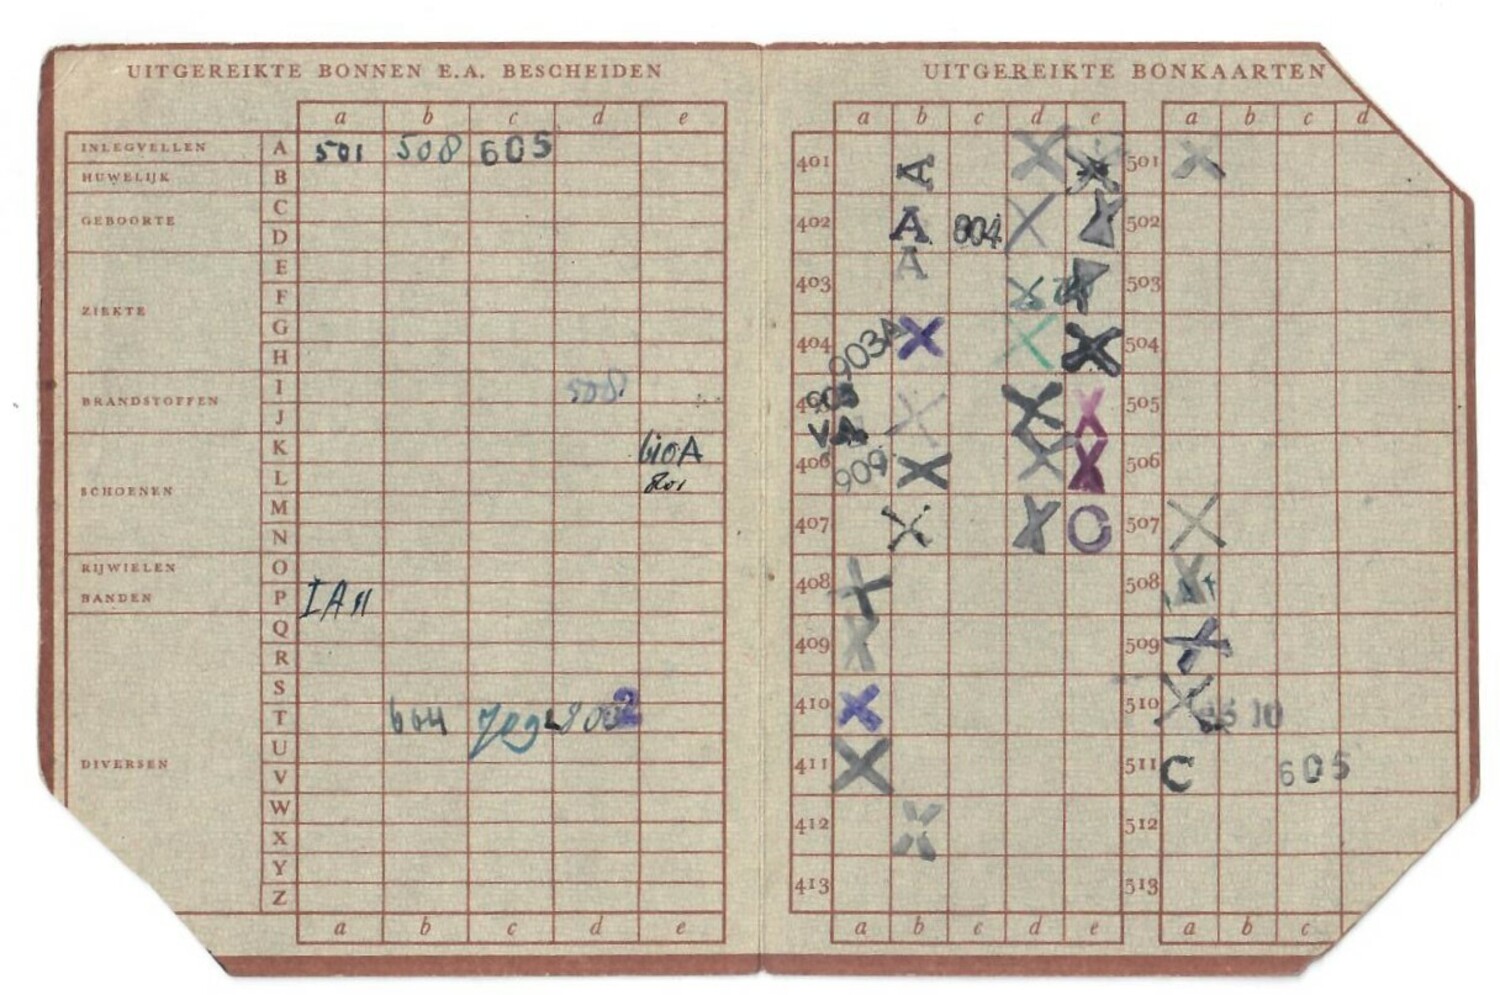 UITGEREIKTE BONNEN E.A. BESCHEIDEN
a b c d e
INLEGVELLEN A 501 508 605
HUWELIJK B
C
GEBOORTE
D
E
F
ZIEKTE
G
H
I 508
BRANDSTOFFEN
J
K 610A
L 801
SCHOENEN
M
N
RIJWIELEN O
BANDEN P IA11
Q
R
S
T 604
U
DIVERSEN V
W
X
Y
Z
a b c d e
UITGEREIKTE BONKAARTEN
a b c d e a b c d
401 A X X 501 X
402 A 804 X X 502
403 A X X 503
404 903A X X X 504
X X X 505
406 909 X X X 506
407 X X O 507 X
408 X 508
409 X 509 X
410 X 510 X
411 X 511 C 605
412 X 512
413 513
a b c d e a b c